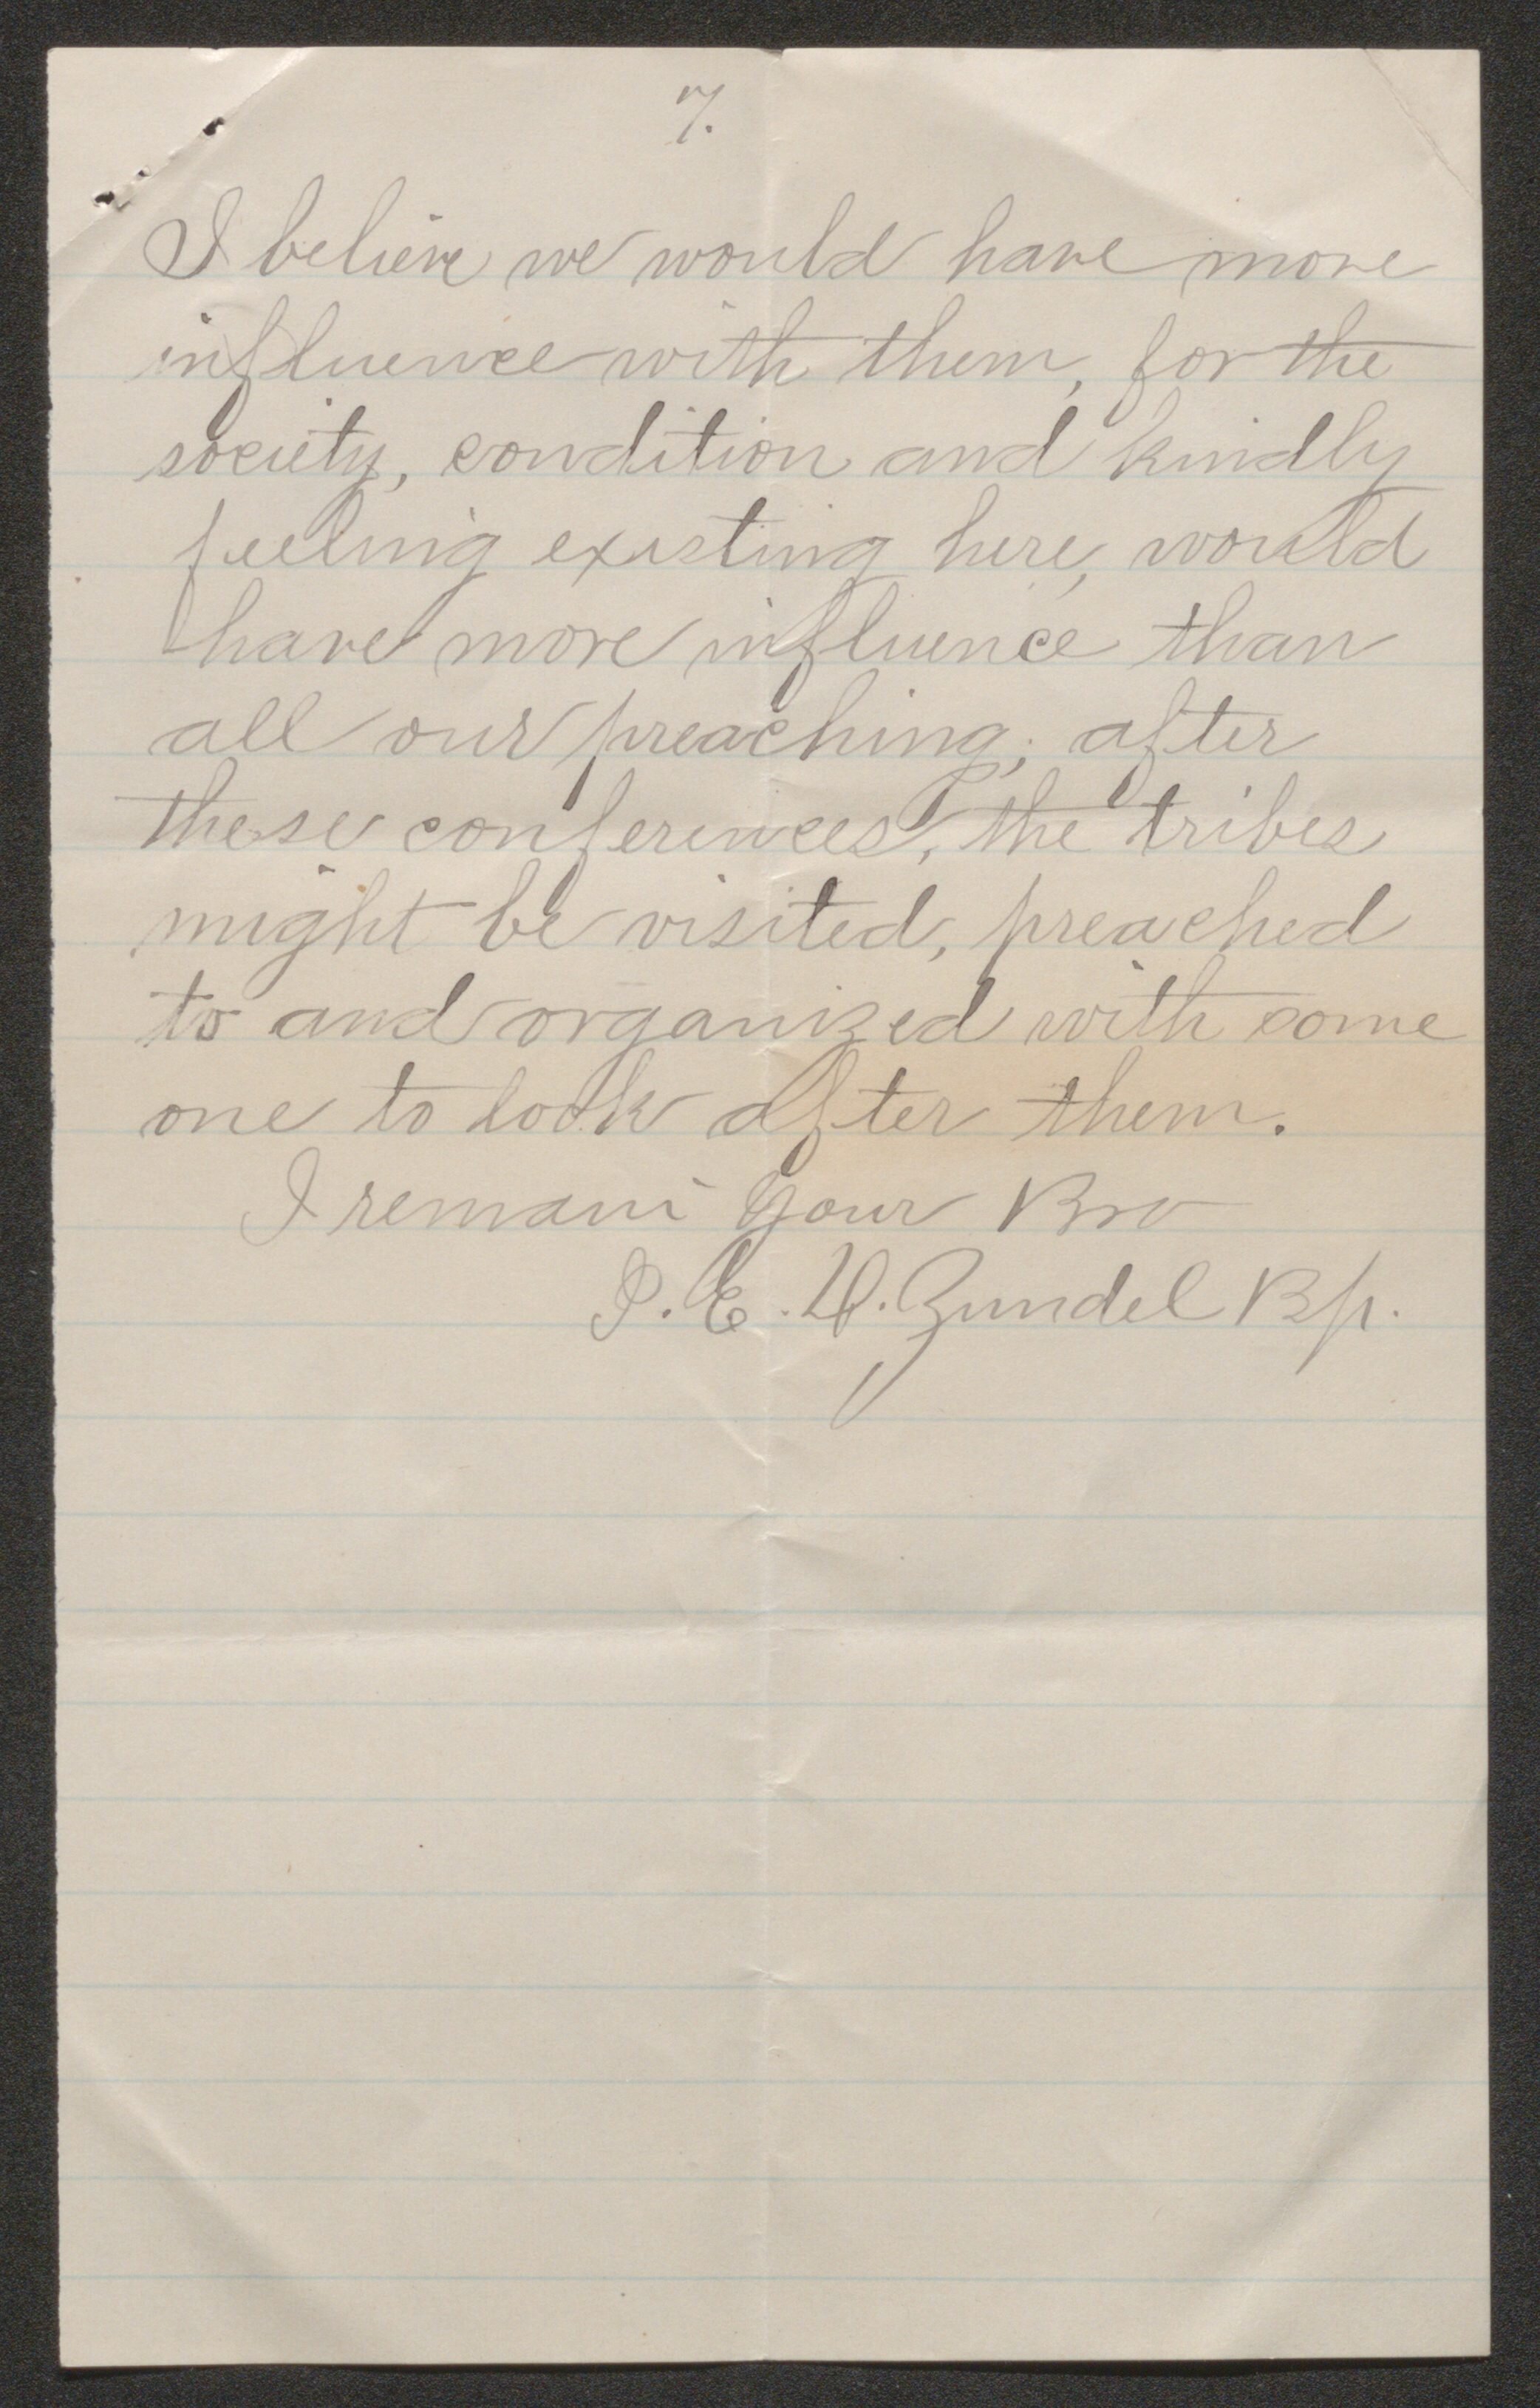 7.
I believe we would have more
influence with them, for the
society, condition and kindly
feeling existing here, would
have more influence than
all our preaching; after
these conferences, the tribes
might be visited, preached
to and organized with some
one to look after them.
I remain your Bro
I. E. D. Zundel Bp.